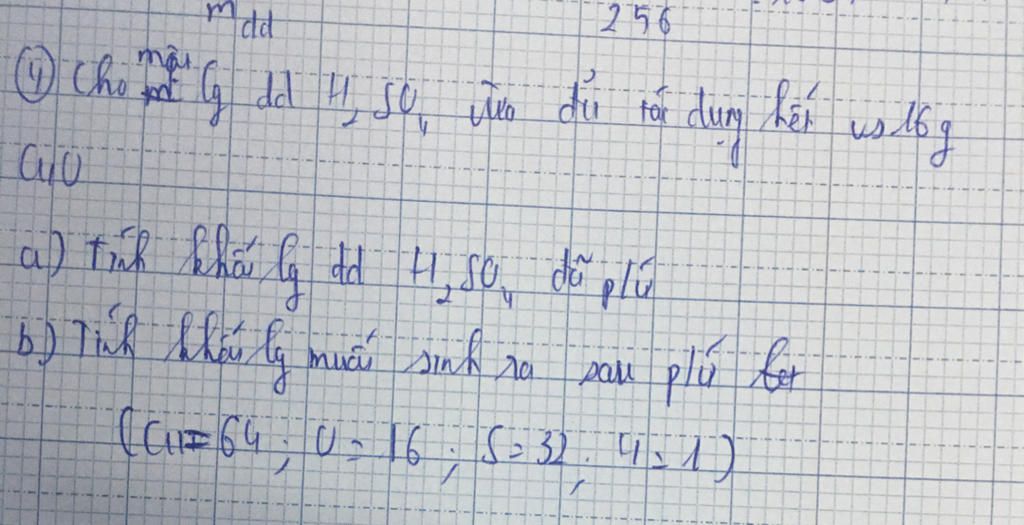 m dd 256
④ Cho một lg dd H₂SO₄ vừa đủ tác dụng hết vs 16g
CuO
a) Tính khối lg dd H₂SO₄ đã p/ứ
b) Tính khối lg muối sinh ra sau p/ứ
(Cu = 64 ; O = 16 ; S = 32 ; H = 1)